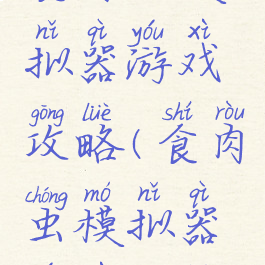 nǐ qì yóu xì
拟器游戏
gōng lüè shí ròu
攻略(食肉
chóng mó nǐ qì
虫模拟器